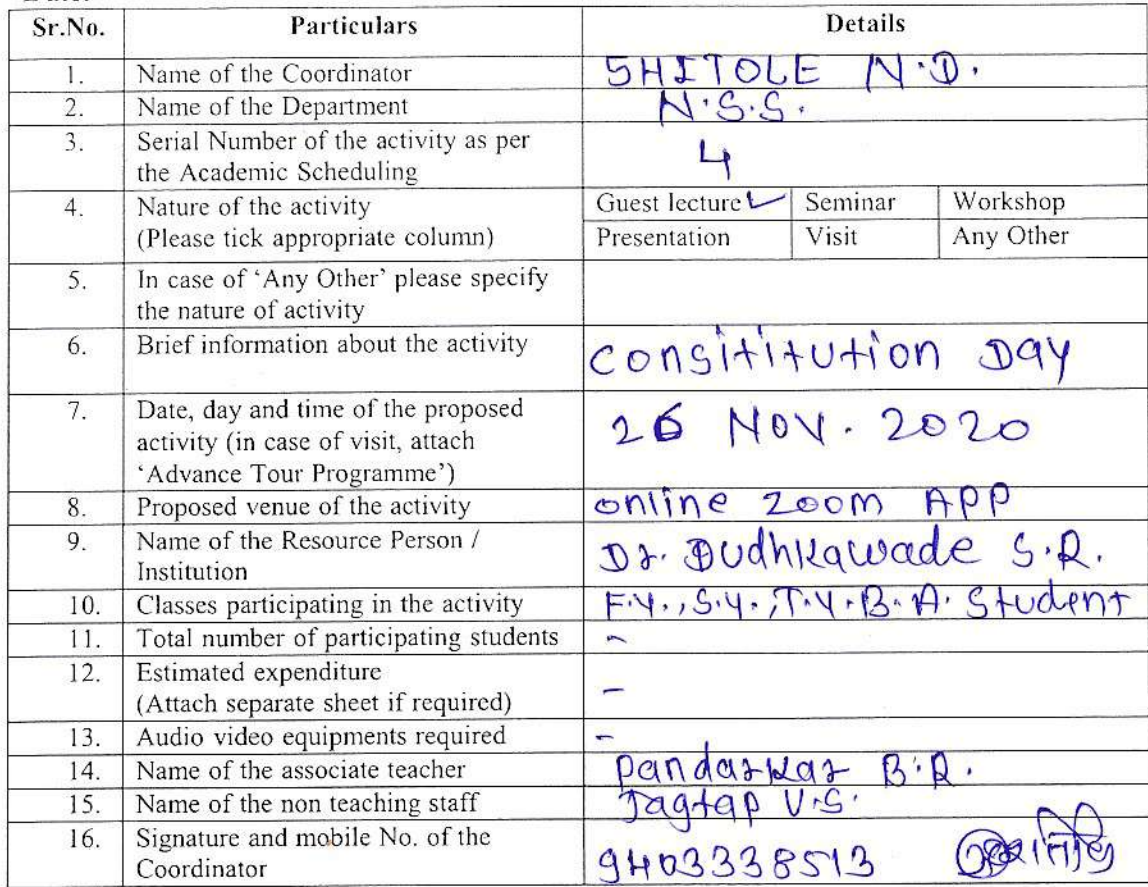 Sr.No. Particulars Details
1. Name of the Coordinator SHITOLE N.D.
2. Name of the Department N.S.S.
3. Serial Number of the activity as per
the Academic Scheduling 4
4. Nature of the activity Guest lecture ✓ Seminar Workshop
(Please tick appropriate column) Presentation Visit Any Other
5. In case of 'Any Other' please specify
the nature of activity
6. Brief information about the activity Consititution Day
7. Date, day and time of the proposed
activity (in case of visit, attach 26 NOV. 2020
'Advance Tour Programme')
8. Proposed venue of the activity online zoom APP
9. Name of the Resource Person / Dr. Dudhkawade S.R.
Institution
10. Classes participating in the activity F.Y., S.Y., T.Y. B.A. Student
11. Total number of participating students -
12. Estimated expenditure
(Attach separate sheet if required) -
13. Audio video equipments required -
14. Name of the associate teacher Pandarkar B.R.
15. Name of the non teaching staff Jagtap V.S.
16. Signature and mobile No. of the
Coordinator 9403338513